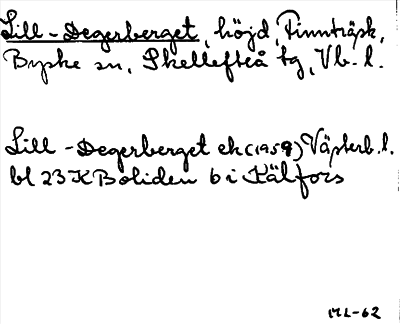 Lill-Degerberget, höjd, Finnträsk,
Byske sn, Skellefteå tg, Vb. l.
Lill-Degerberget ek (1959) Västerb. l.
bl 23 K Boliden 6 i Källfors
ML-62